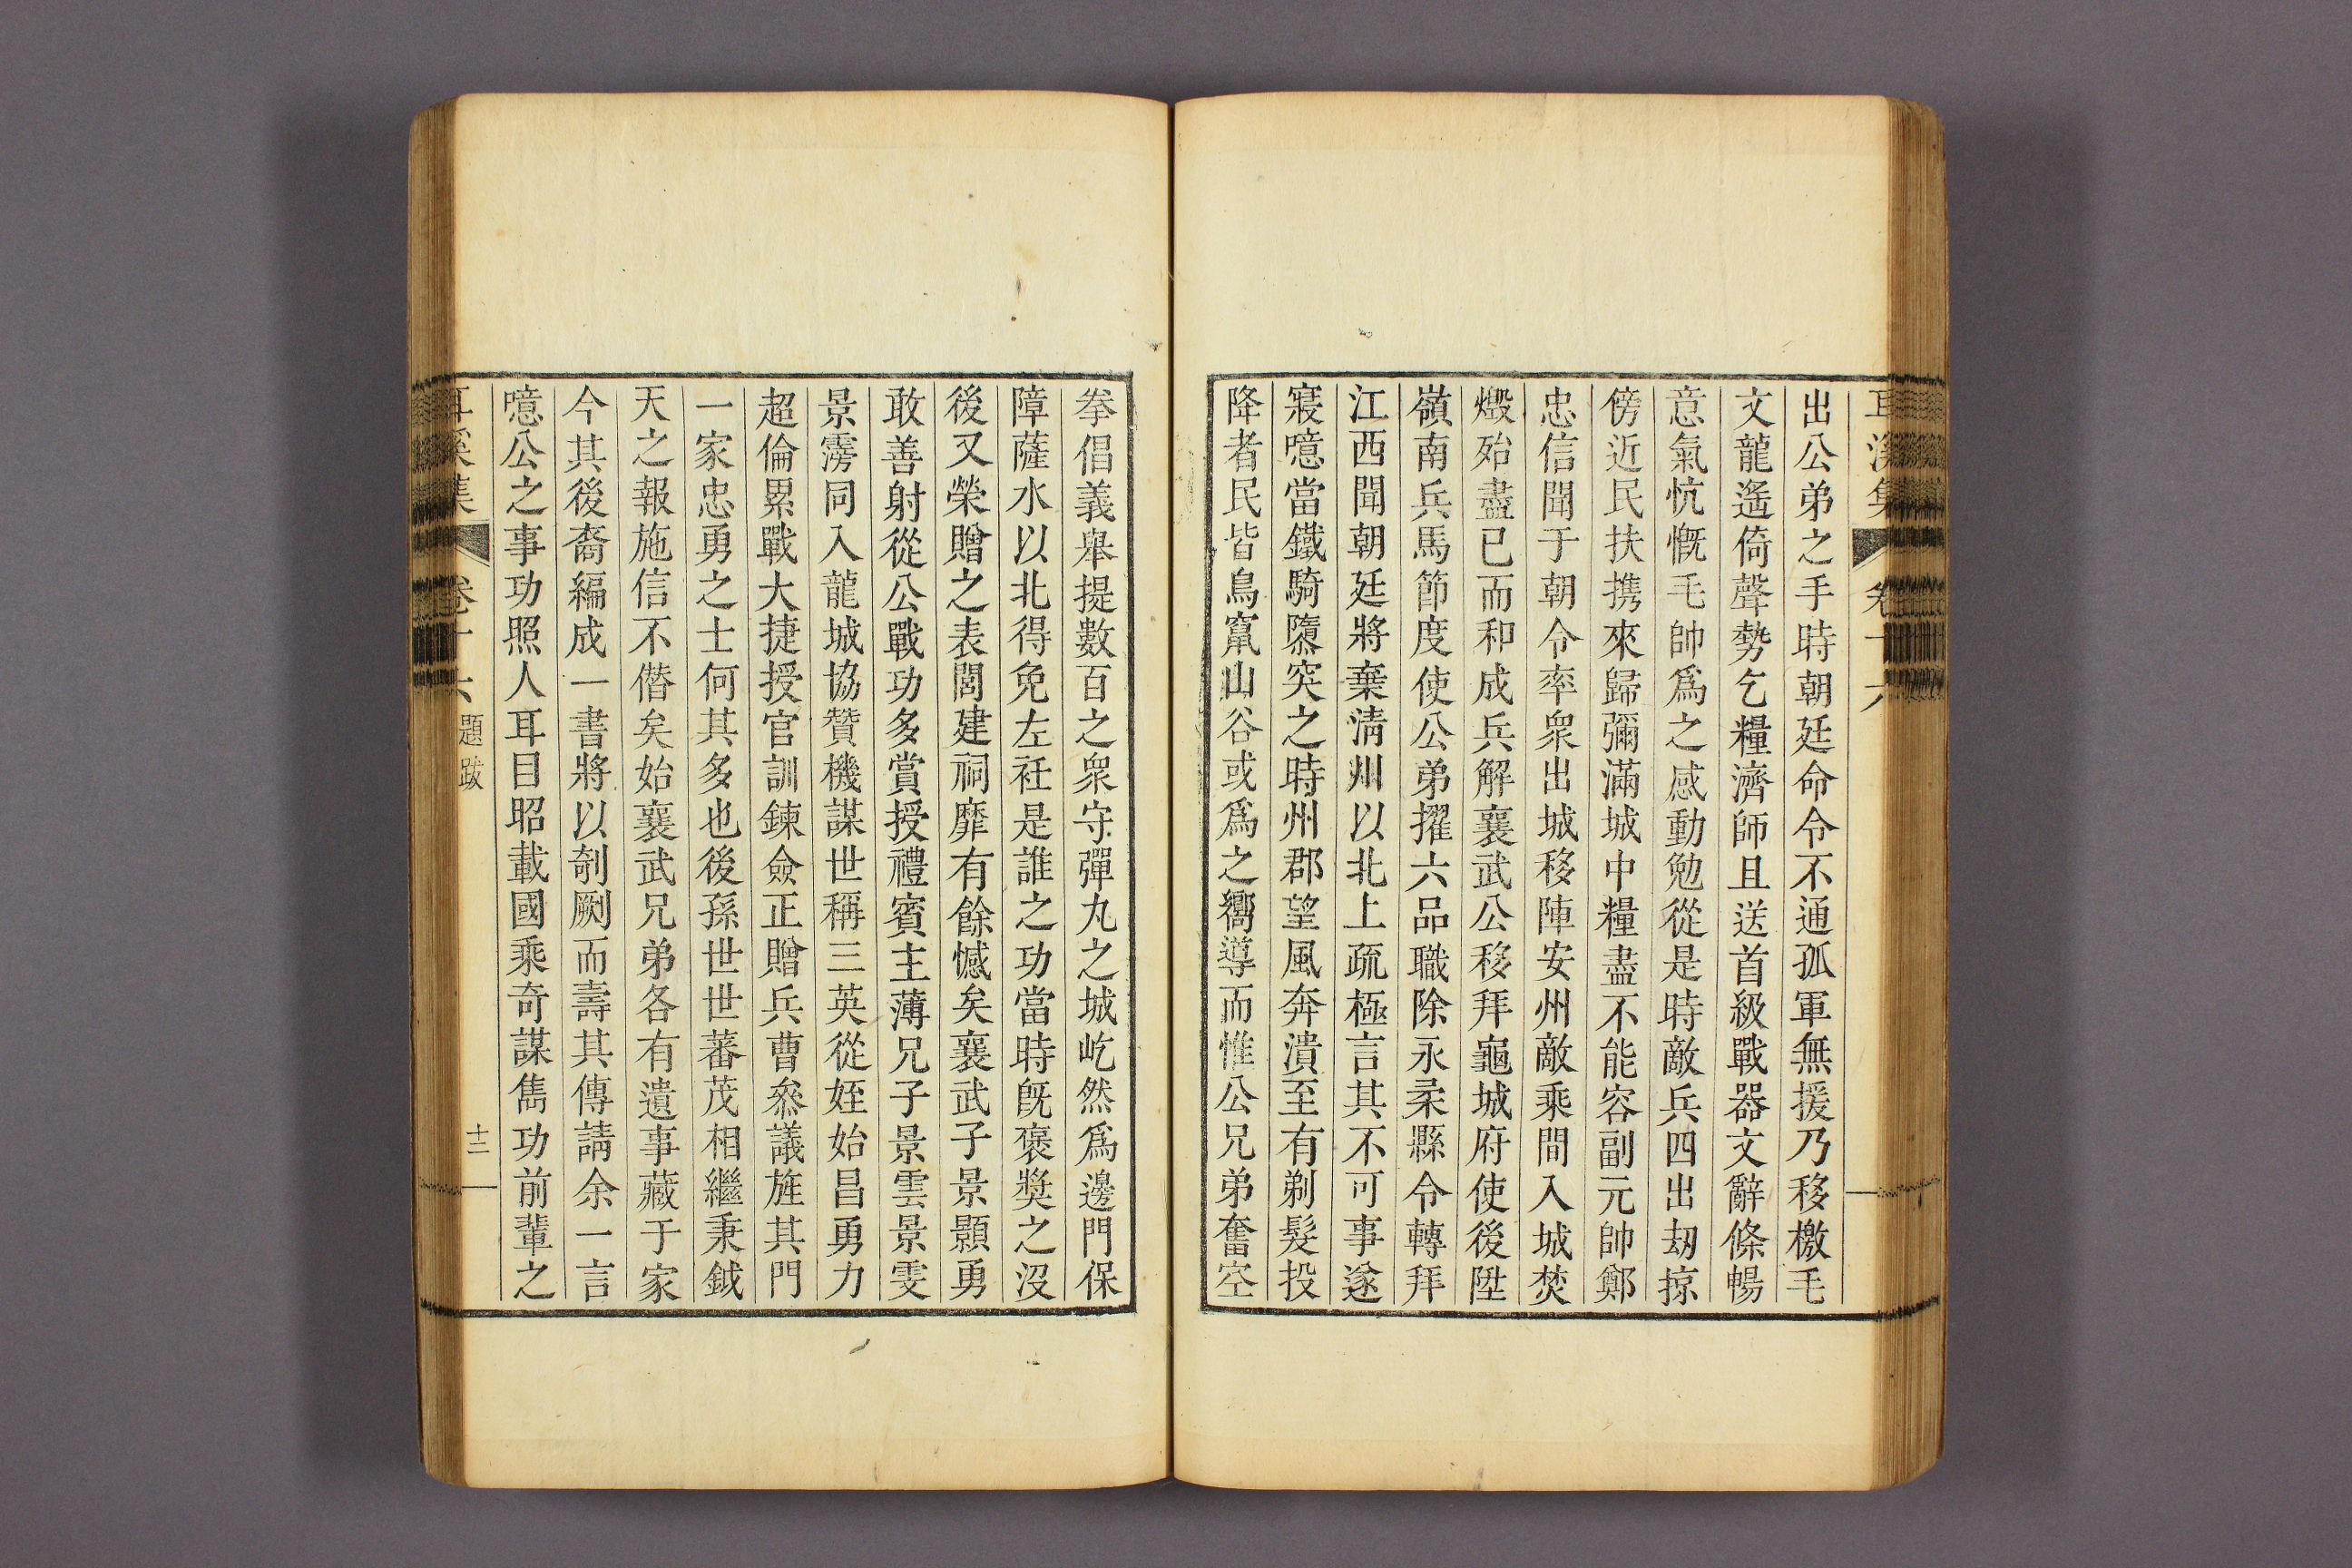 耳溪集 卷十六
出公弟之手時朝廷命令不通孤軍無援乃移檄毛
文龍遙倚聲勢乞糧濟師且送首級戰器文辭條暢
意氣忼慨毛帥爲之感動勉從是時敵兵四出刼掠
傍近民扶携來歸彌滿城中糧盡不能容副元帥鄭
忠信聞于朝令率衆出城移陣安州敵乘間入城焚
燬殆盡已而和成兵解襄武公移拜龜城府使後陞
嶺南兵馬節度使公弟擢六品職除永柔縣令轉拜
江西聞朝廷將棄淸州以北上疏極言其不可事遂
寢噫當鐵騎隳突之時州郡望風奔潰至有剃髮投
降者民皆鳥竄山谷或爲之嚮導而惟公兄弟奮空
拳倡義舉提數百之衆守彈丸之城屹然爲邊門保
障薩水以北得免左衽是誰之功當時旣褒獎之沒
後又榮贈之表閭建祠靡有餘憾矣襄武子景顥勇
敢善射從公戰功多賞授禮賓主薄兄子景雲景雯
景雱同入龍城協贊機謀世稱三英從姪始昌勇力
超倫累戰大捷授官訓鍊僉正贈兵曹叅議旌其門
一家忠勇之士何其多也後孫世世蕃茂相繼秉鉞
天之報施信不僭矣始襄武兄弟各有遺事藏于家
今其後裔編成一書將以剞劂而壽其傳請余一言
噫公之事功照人耳目昭載國乘奇謀雋功前輩之
耳溪集 卷十六 題跋 十三